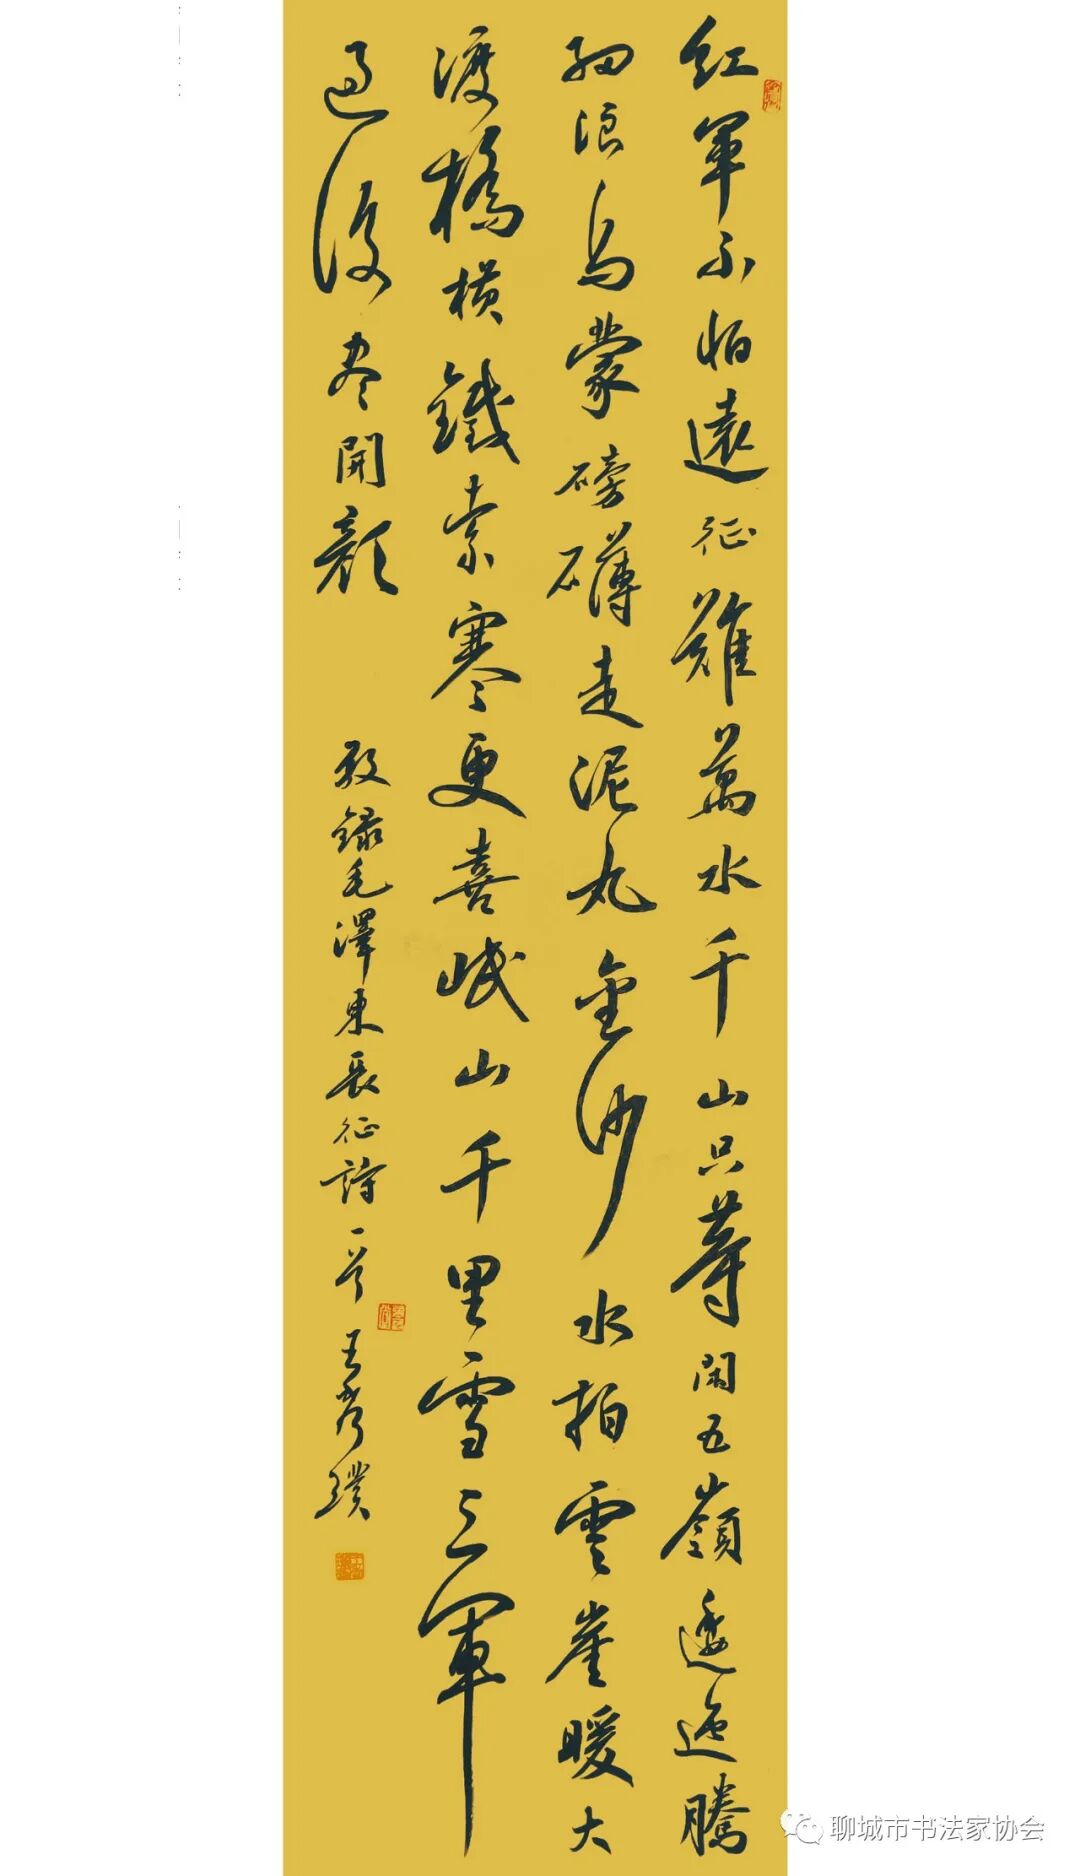 紅軍不怕遠征難萬水千山只等閑五嶺逶迤騰
細浪烏蒙磅礴走泥丸金沙水拍雲崖暖大
渡橋横鐵索寒更喜岷山千里雪三軍
過後尽開顔
敬録毛澤東長征詩一首 王秀璞
聊城市书法家协会